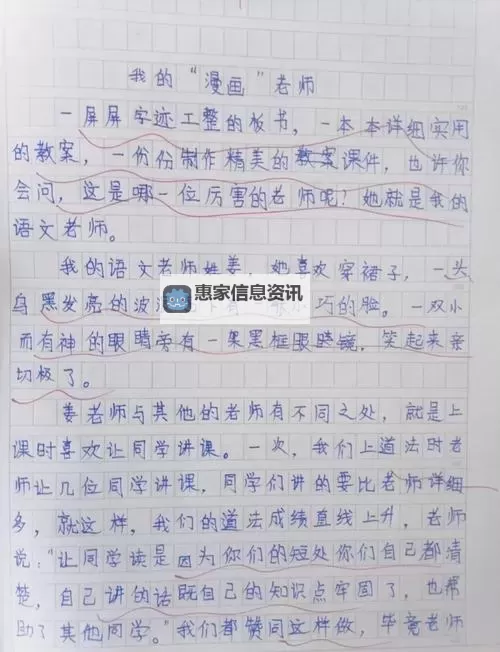 我的“漫画”老师
一屏屏字迹工整的板书，一本本详细实用
的教案，一份份制作精美的教案课件，也许你
会问，这是哪一位厉害的老师呢？她就是我的
语文老师。
我的语文老师姓姜，她喜欢穿裙子，一头
乌黑发亮的波
惠家信息资讯
小巧的脸。一双小
而有神的眼睛旁有一架黑框眼镜，笑起来亲
切极了。
姜老师与其他的老师有不同之处，就是上
课时喜欢让同学讲课。一次，我们上道法时老
师让几位同学讲课，同学们讲的要比老师详细
多，就这样，我们的道法成绩直线上升，老师
说：“让同学读是因为你们的短处你们自己都清
楚，自己讲的话既自己的知识点牢固了，也帮
助了其他同学。”我们都赞同这样做，毕竟老师